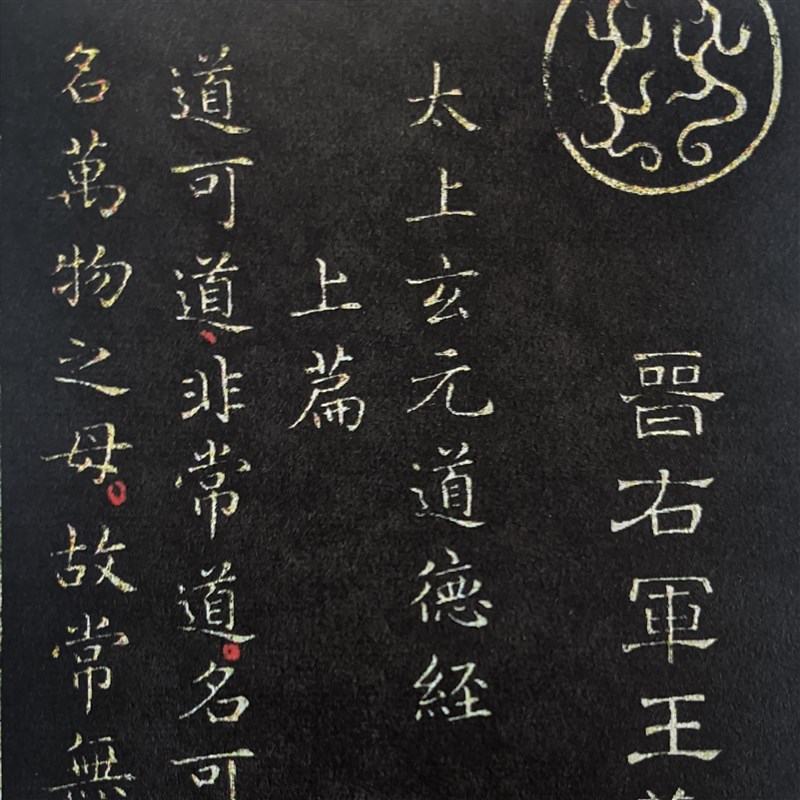 晉右軍王
太上玄元道德経
上篇
道可道非常道名可
名萬物之母故常無